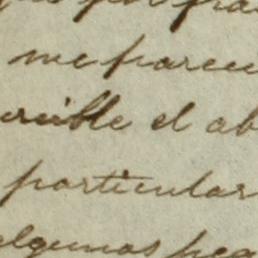 me parece
creible el ab
particular
algunas pea